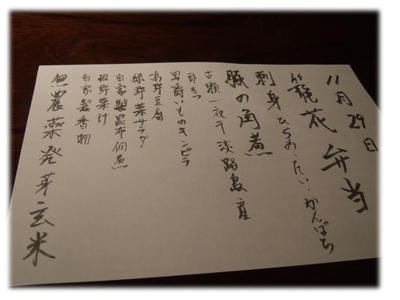 11月29日
籠花 弁当
刺身 ひらめ、たい、かんぱち
豚の角煮
古頭一夜干 淡路島産
男爵いものキンピラ
高野豆腐
緑野菜サラダ
自家製昆布佃煮
根野菜汁
自家製香物
無農薬発芽玄米